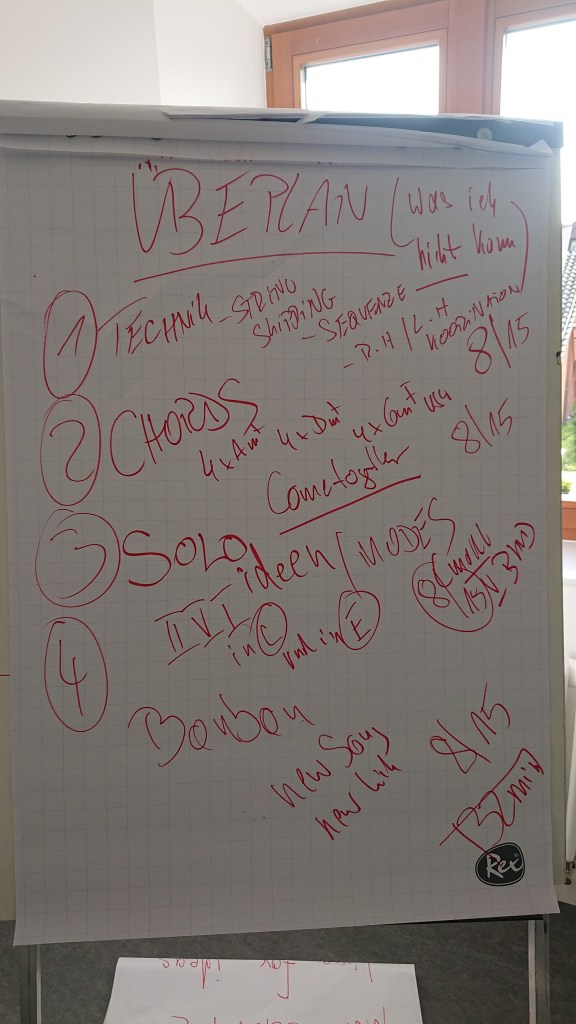 ÜBEPLAN (Was ich
nicht kann)
1 TECHNIK - STRING
SKIPPING
- SEQUENZE
- R.H / L.H
KOORDINATION
8/15
2 CHORDS
4xAm7 4xDm7 4xGm7 usw
8/15
Cometogether
3 SOLO ideen / MODES
II V I
in C und in E
8/15
4
Bonbon
new Song
new Lick
8/15
32min
Rex
for ideas